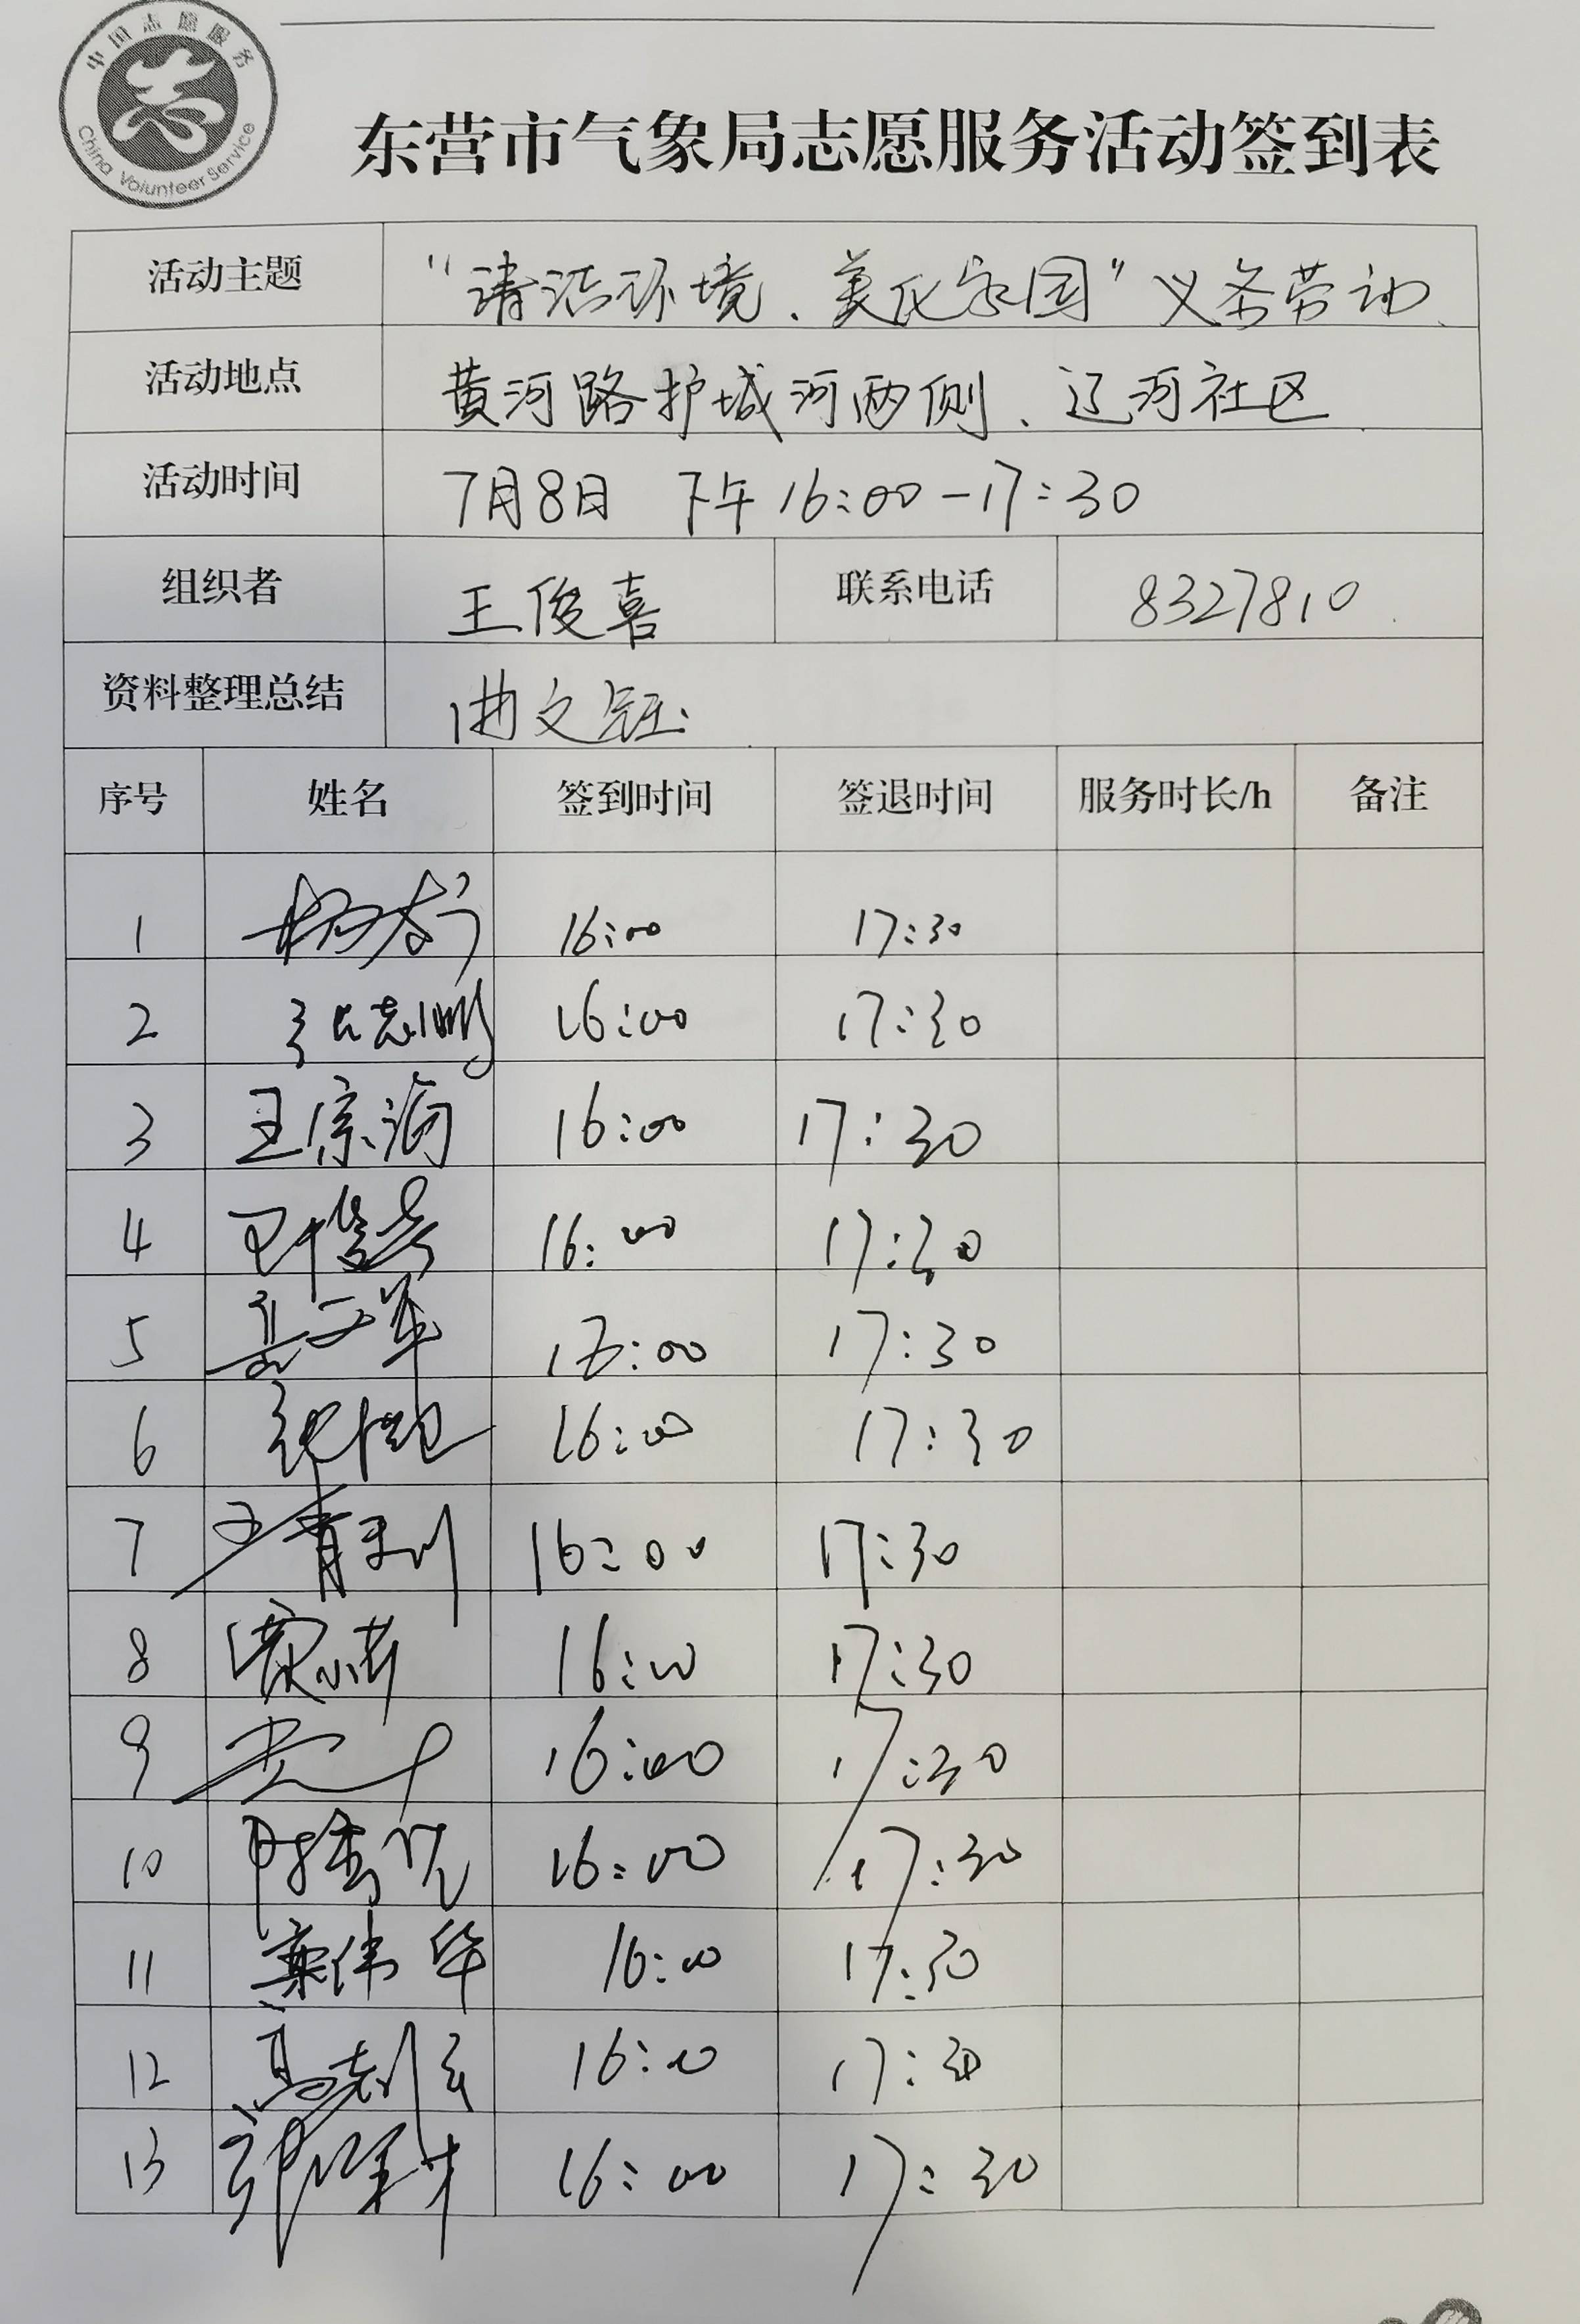 中国志愿服务
China Volunteer Service
东营市气象局志愿服务活动签到表
活动主题 "清洁环境、美化家园"义务劳动
活动地点 黄河路护城河两侧、辽河社区
活动时间 7月8日 下午16:00-17:30
组织者 王俊喜 联系电话 8327810
资料整理总结 曲文钰
序号 姓名 签到时间 签退时间 服务时长/h 备注
1 16:00 17:30
2 张志鹏 16:00 17:30
3 王宗海 16:00 17:30
4 王俊喜 16:00 17:30
5 16:00 17:30
6 16:00 17:30
7 16:00 17:30
8 16:00 17:30
9 16:00 17:30
10 16:00 17:30
11 伟华 16:00 17:30
12 高志 16:00 17:30
13 16:00 17:30